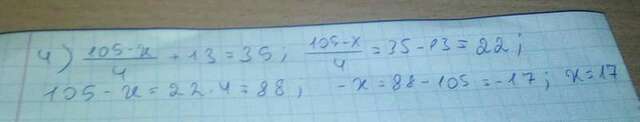 4) (105-x)/4 + 13 = 35; (105-x)/4 = 35-13 = 22;
105 - x = 22·4 = 88; -x = 88-105 = -17; x=17